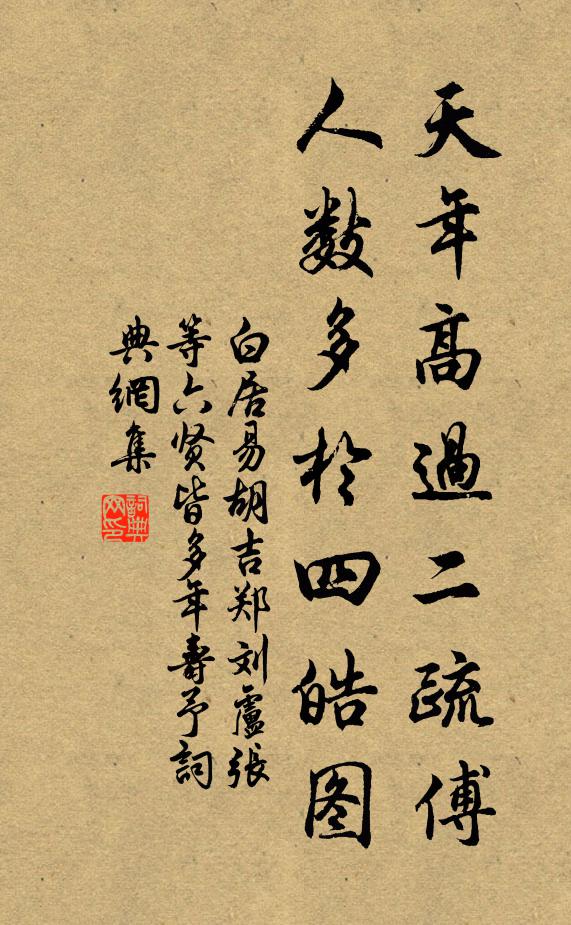 天年高過二疏傅
人数多於四皓图
白居易胡吉郑刘盧張
等六贤皆多年壽予詞
典網集
詞典
网印